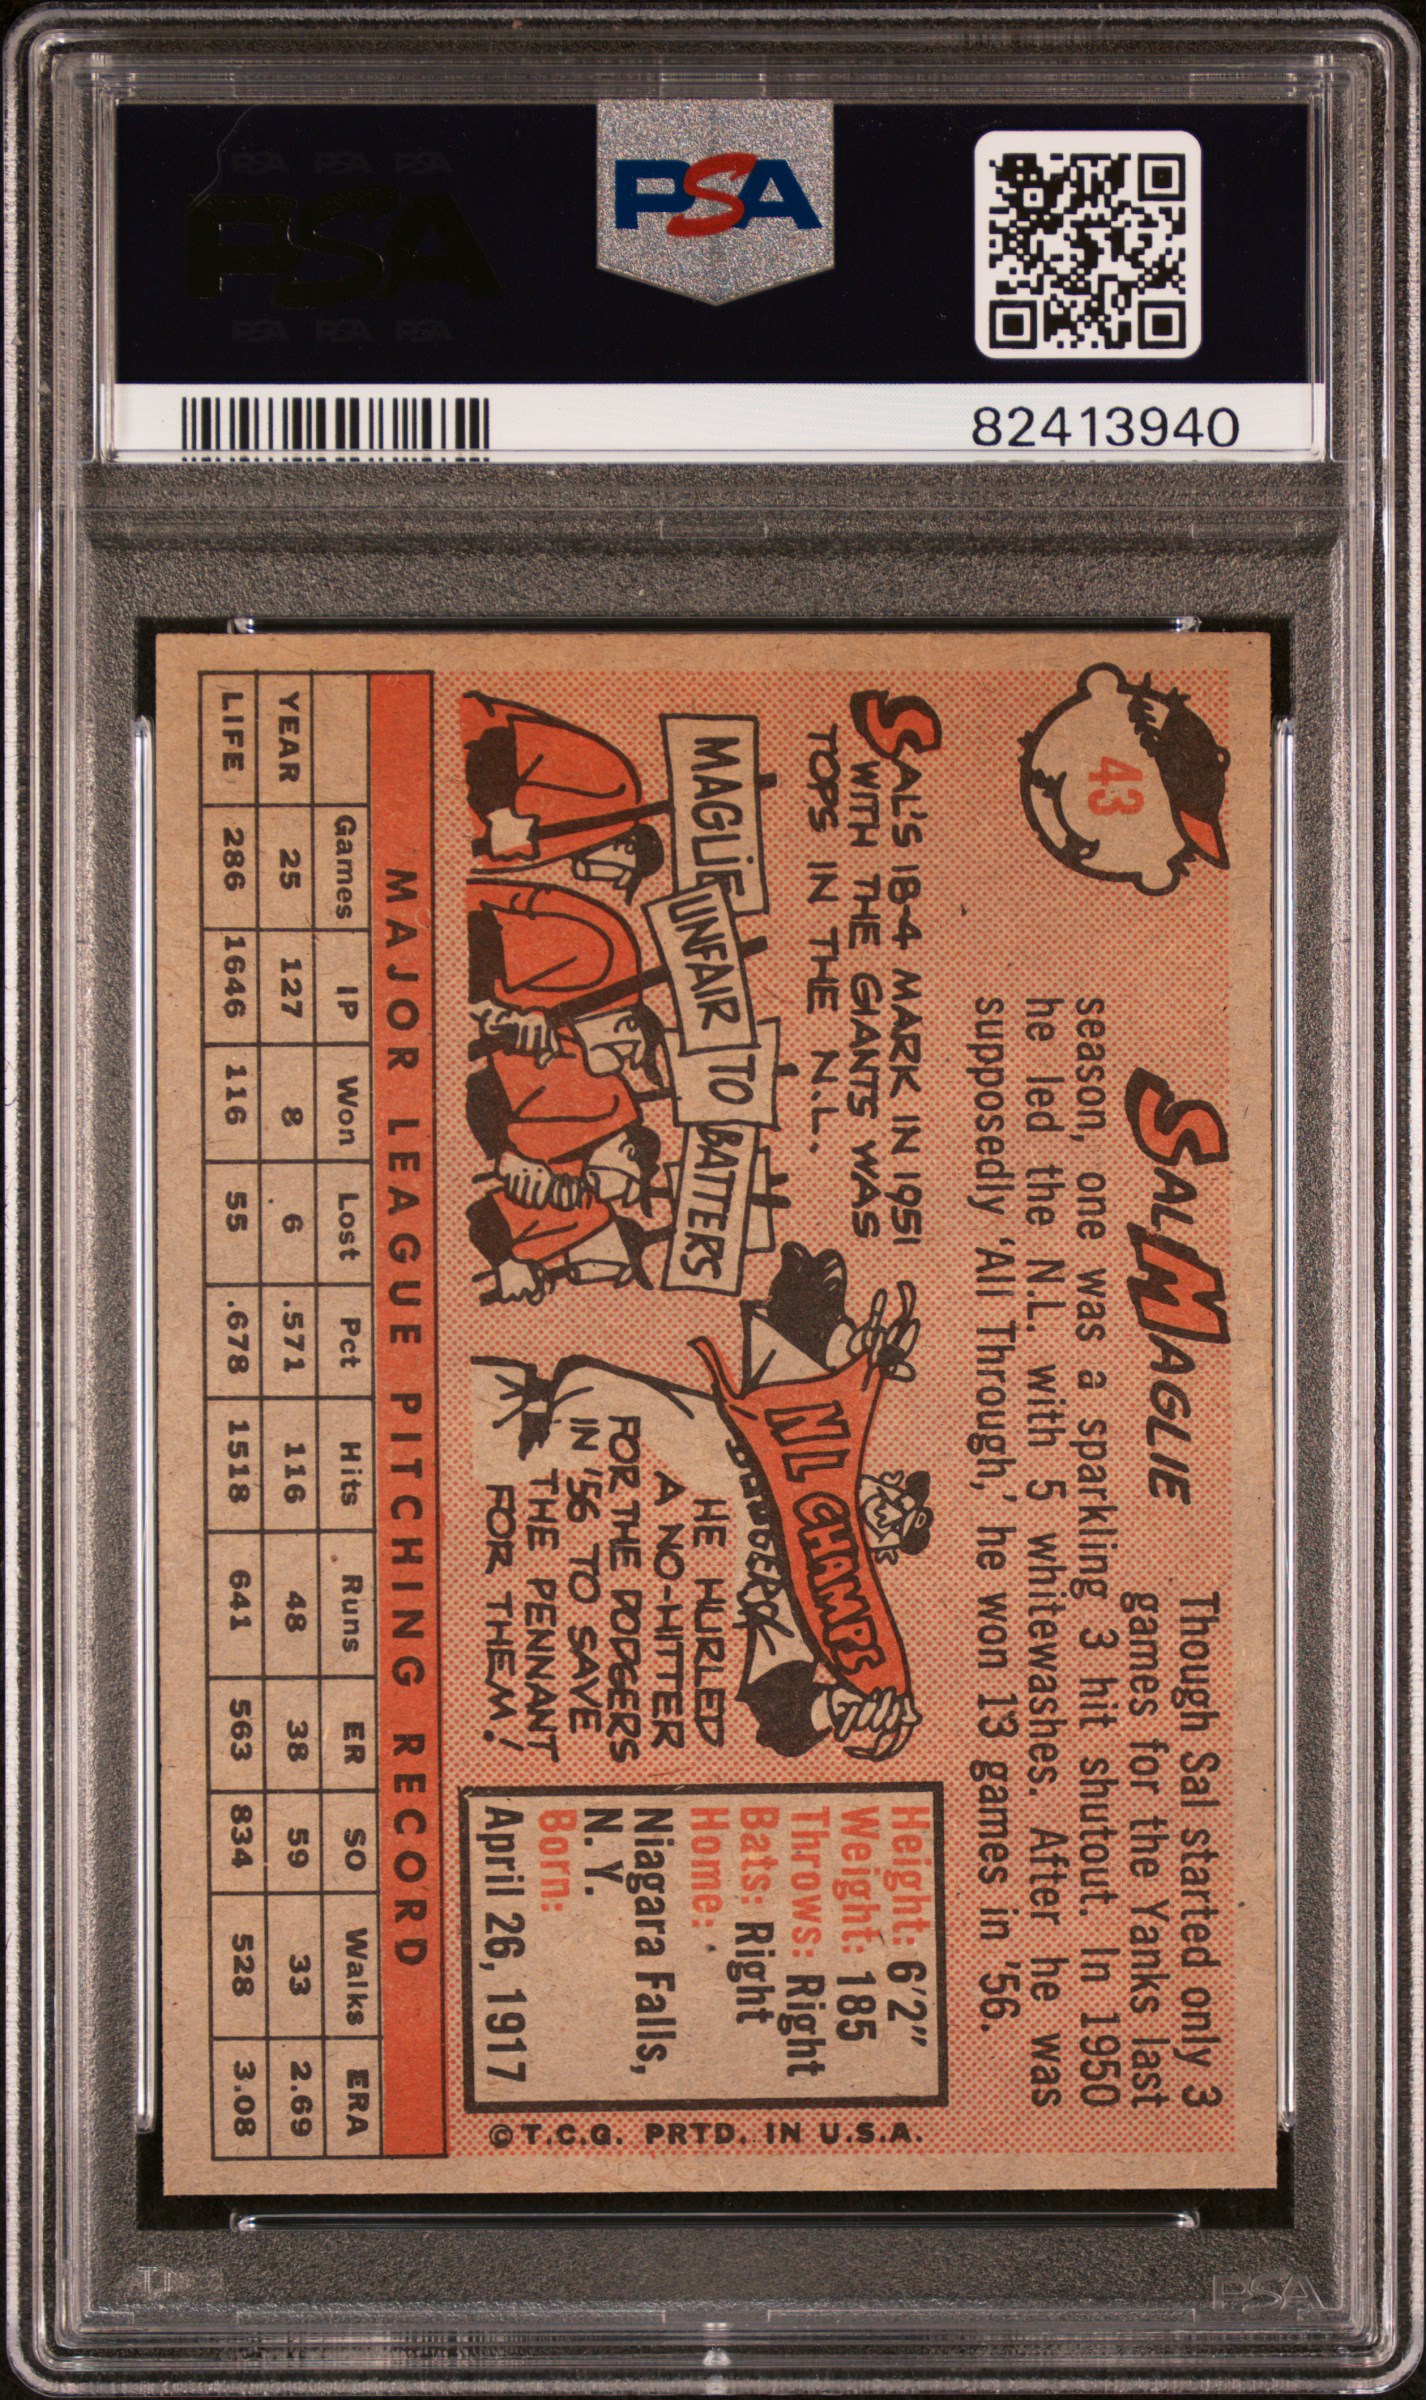 PSA PSA PSA
PSA
PSA PSA PSA
PSA
82413940
43
SAL MAGLIE
Though Sal started only 3
games for the Yanks last
season, one was a sparkling 3 hit shutout. In 1950
he led the N.L. with 5 whitewashes. After he was
supposedly ‘All Through,’ he won 13 games in ’56.
SAL'S 18-4 MARK IN 1951
WITH THE GIANTS WAS
TOPS IN THE N.L.
MAGLIE UNFAIR TO BATTERS
NL CHAMPS
HE HURLED
A NO-HITTER
FOR THE DODGERS
IN '56 TO SAVE
THE PENNANT
FOR THEM!
Height: 6'2"
Weight: 185
Throws: Right
Bats: Right
Home:
Niagara Falls,
N. Y.
Born:
April 26, 1917
© T.C.G. PRTD. IN U.S.A.
MAJOR LEAGUE PITCHING RECORD
Games IP Won Lost Pct Hits Runs ER SO Walks ERA
YEAR 25 127 8 6 .571 116 48 38 59 33 2.69
LIFE 286 1646 116 55 .678 1518 641 563 834 528 3.08
PSA